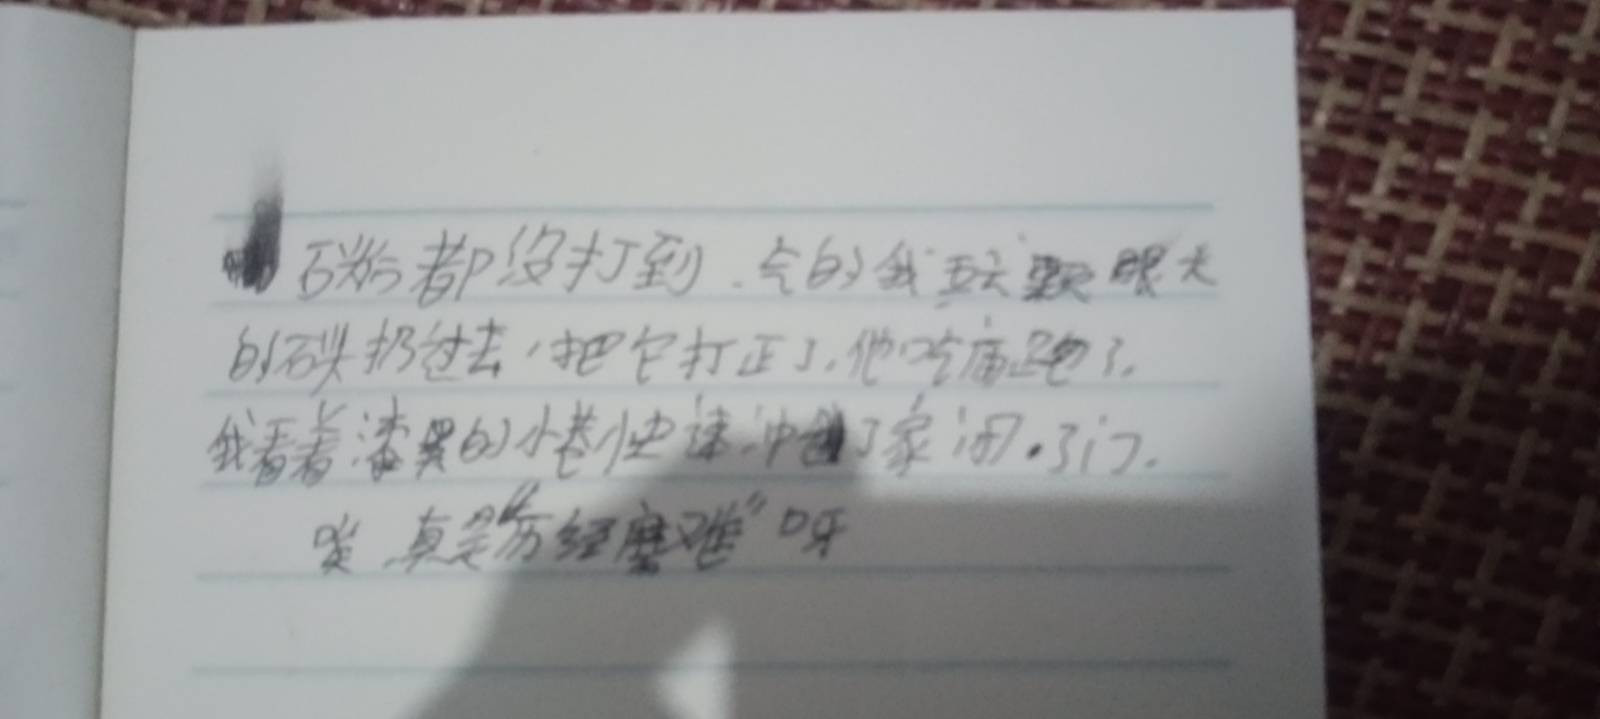 都没打到.气的我 眼大
的 扔过去,把它打正了.他吃痛跑了.
我看着漆黑的小巷快速冲 了家 闭.了门.
唉 真是“历经磨难”呀